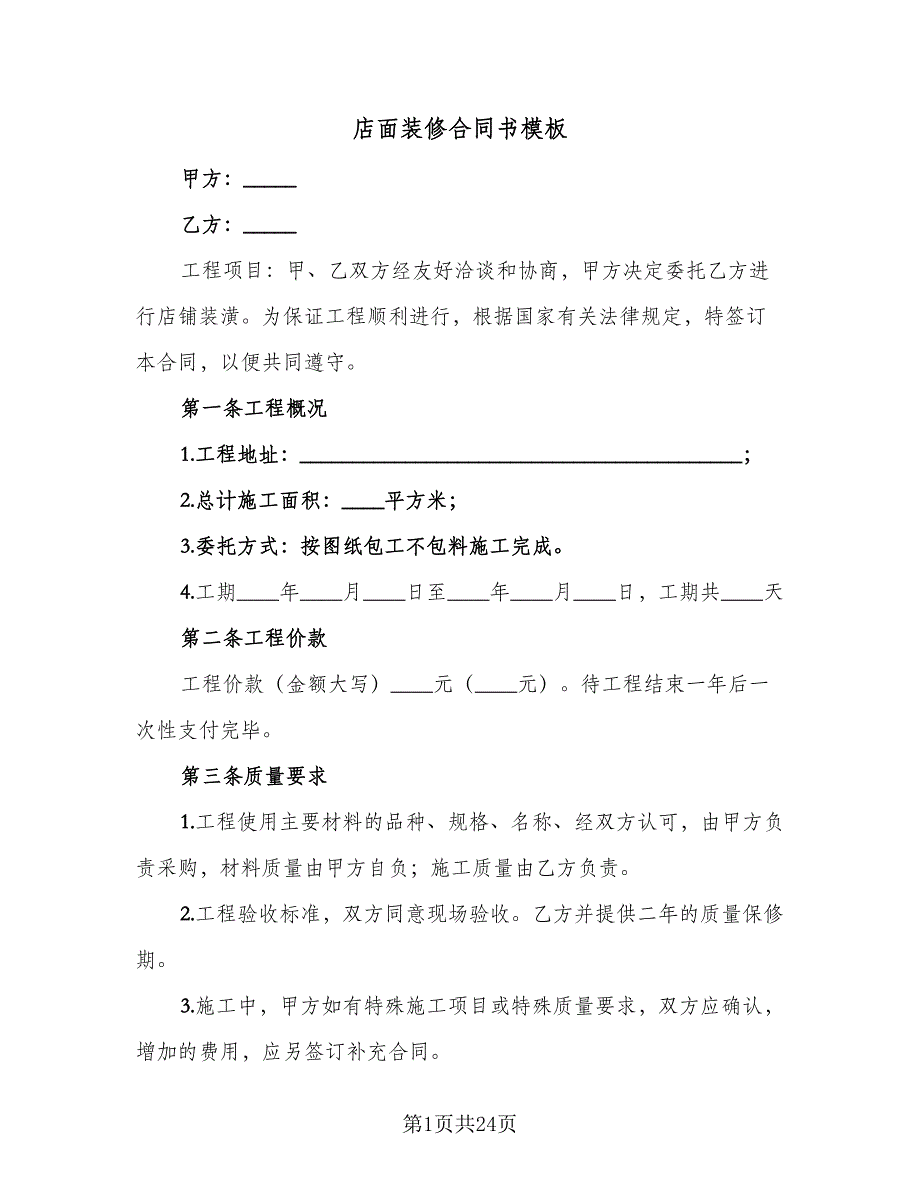 店面装修合同书模板
甲方：_____
乙方：_____
工程项目：甲、乙双方经友好洽谈和协商，甲方决定委托乙方进
行店铺装潢。为保证工程顺利进行，根据国家有关法律规定，特签订
本合同，以便共同遵守。
第一条工程概况
1.工程地址：__________________________________________；
2.总计施工面积：____平方米；
3.委托方式：按图纸包工不包料施工完成。
4.工期____年____月____日至____年____月____日，工期共____天
第二条工程价款
工程价款（金额大写）____元（____元）。待工程结束一年后一
次性支付完毕。
第三条质量要求
1.工程使用主要材料的品种、规格、名称、经双方认可，由甲方负
责采购，材料质量由甲方自负；施工质量由乙方负责。
2.工程验收标准，双方同意现场验收。乙方并提供二年的质量保修
期。
3.施工中，甲方如有特殊施工项目或特殊质量要求，双方应确认，
增加的费用，应另签订补充合同。
第1页共24页